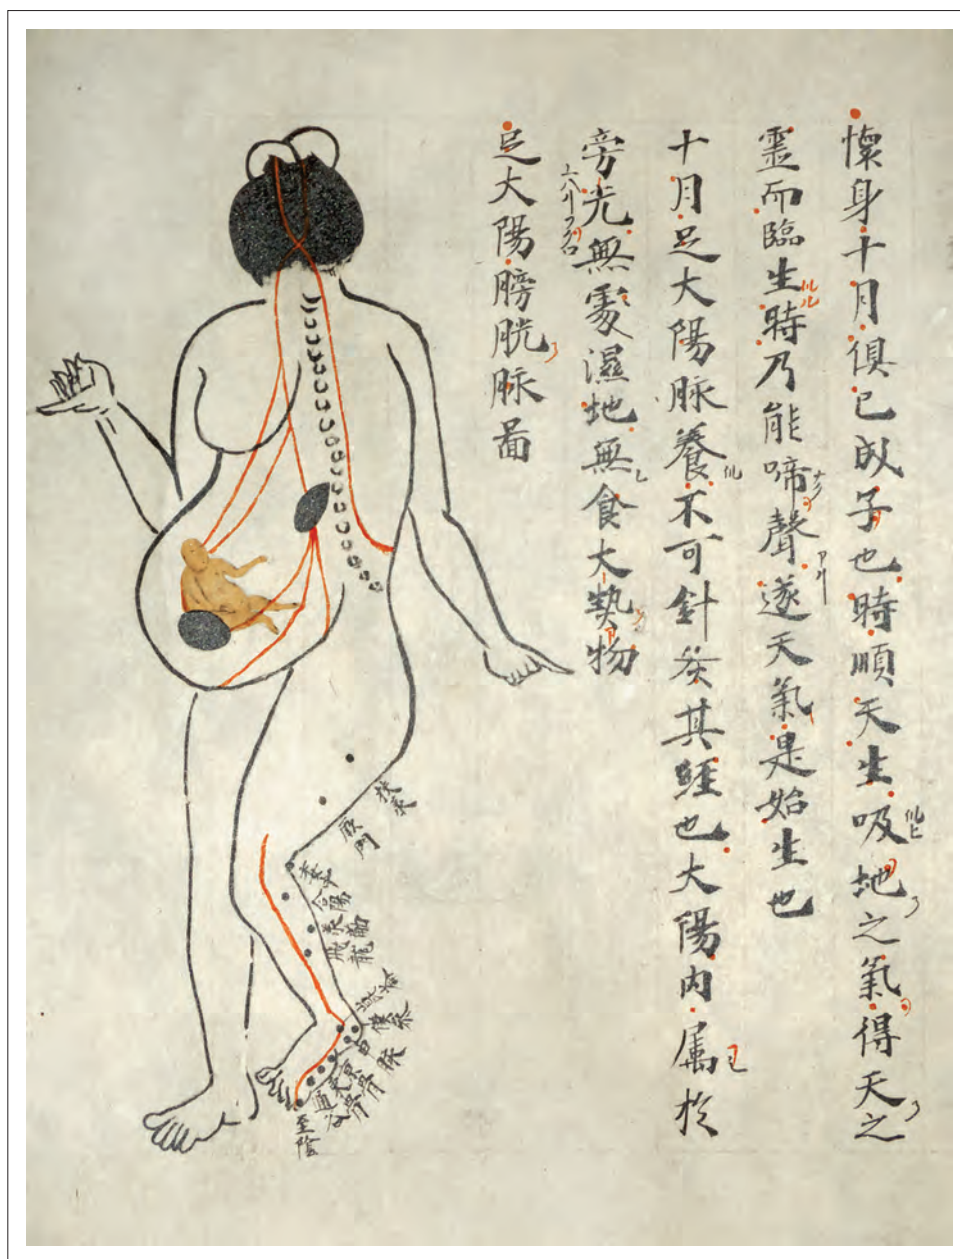 懷身十月俱已成子也時順天生吸地之氣得天之
靈而臨生時乃能啼聲遂天氣是始生也
十月足大陽脉養不可針灸其經也大陽内属於
旁光無處濕地無食大熱物
足大陽膀胱脉啚
扶承
殷門
委中
合陽
承筋
僕參
京骨
束骨
通谷
至陰